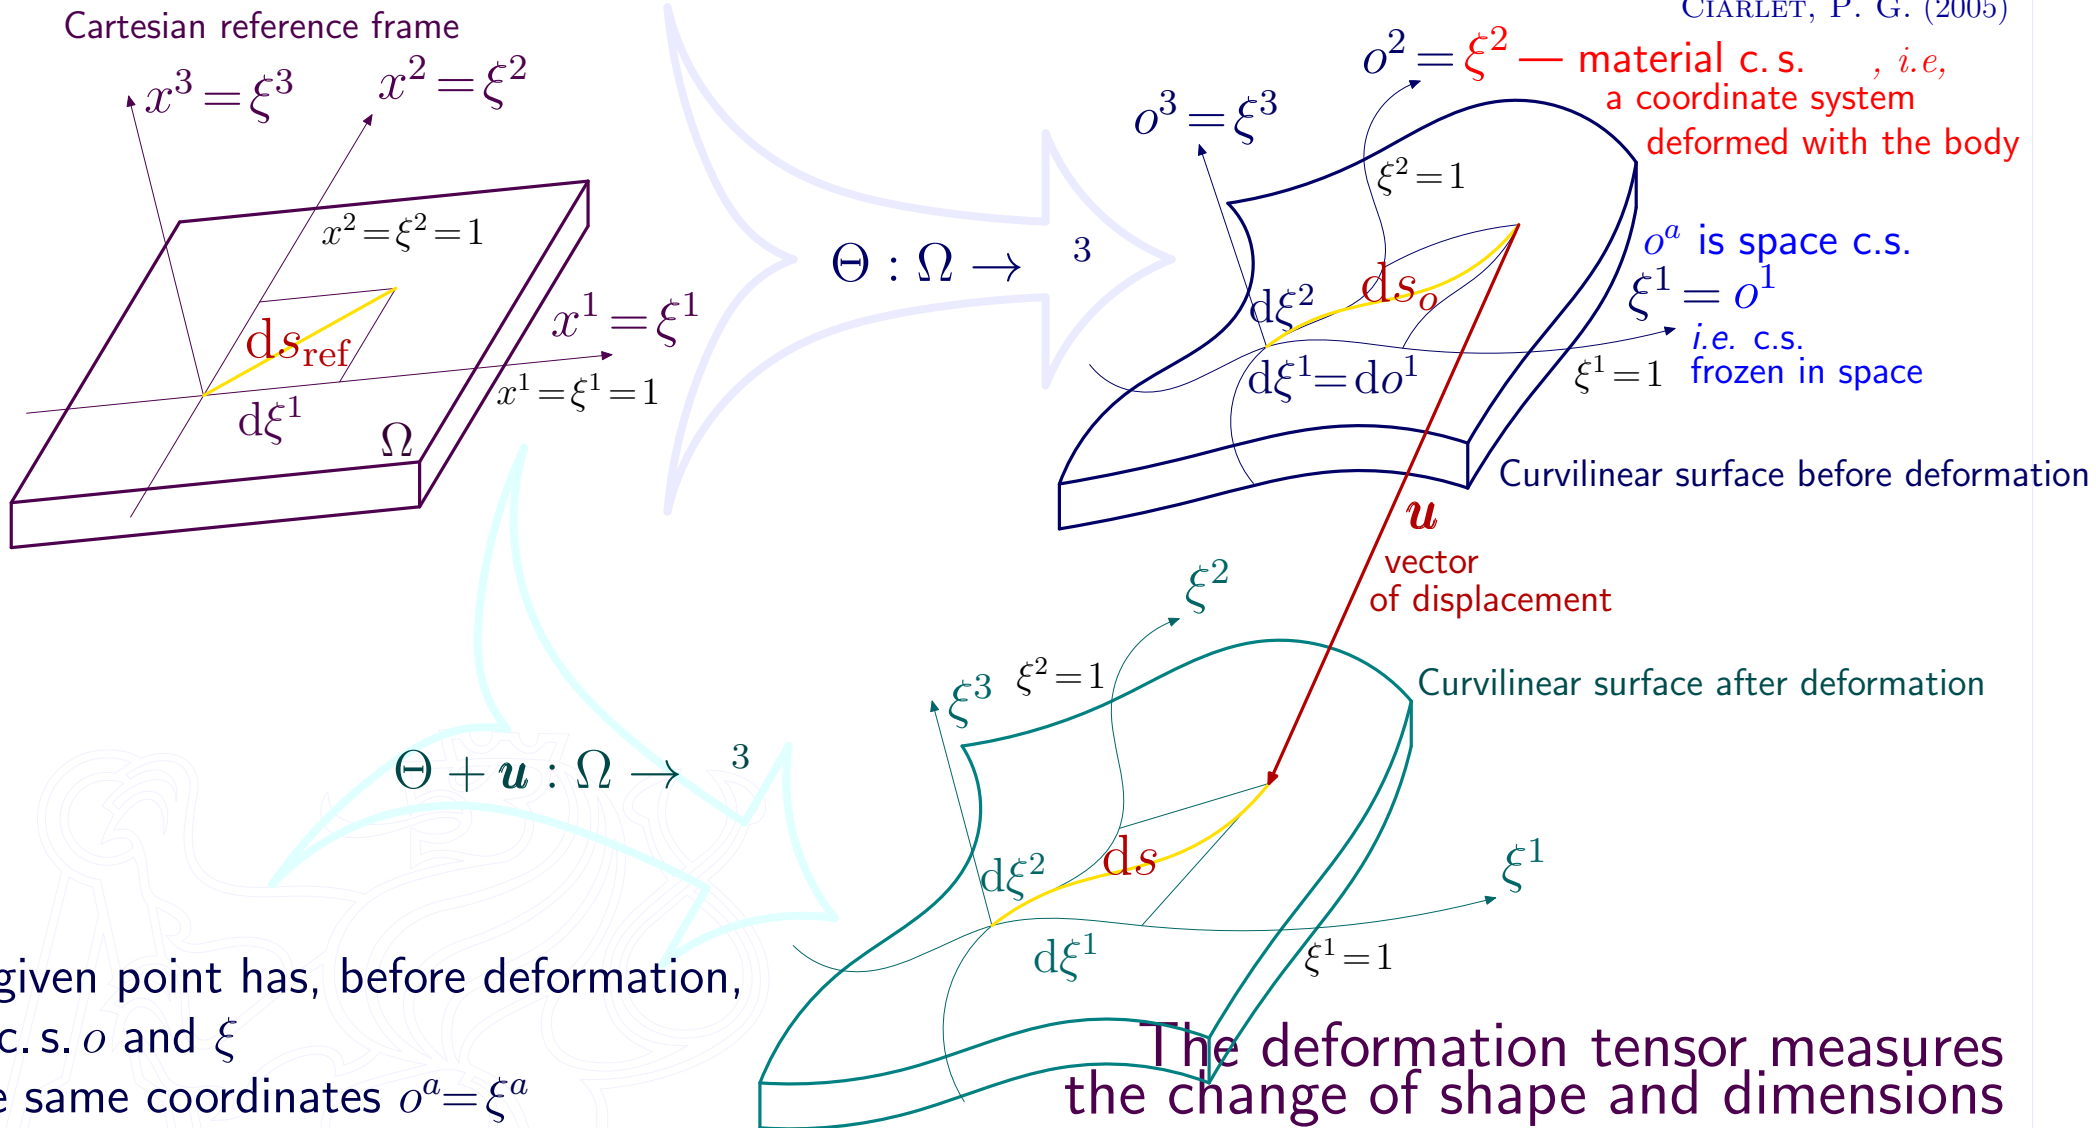 Cartesian reference frame
x³ = ξ³
x² = ξ²
x² = ξ² = 1
ds_ref
x¹ = ξ¹
x¹ = ξ¹ = 1
dξ¹
Ω
Θ : Ω → ³
CIARLET, P. G. (2005)
o² = ξ² — material c. s. , i.e,
a coordinate system
deformed with the body
o³ = ξ³
ξ² = 1
oᵃ is space c.s.
ξ¹ = o¹
i.e. c.s.
frozen in space
dξ²
ds_o
dξ¹ = do¹
ξ¹ = 1
Curvilinear surface before deformation
u
vector
of displacement
Θ + u : Ω → ³
ξ²
ξ² = 1
ξ³
Curvilinear surface after deformation
dξ²
ds
ξ¹
dξ¹
ξ¹ = 1
given point has, before deformation,
c. s. o and ξ
same coordinates oᵃ = ξᵃ
The deformation tensor measures
the change of shape and dimensions